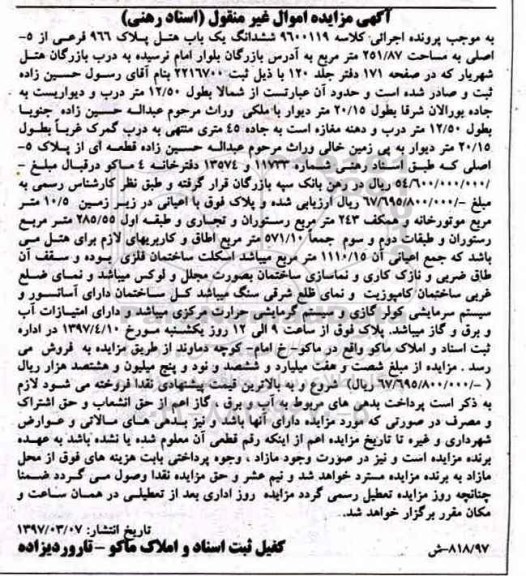 آگهی مزایده اموال غیر منقول (اسناد رهنی)
به موجب پرونده اجرائی کلاسه ۹۶۰۰۱۱۹ ششدانگ یک باب هتل پلاک ۹۶۶ فرعی از ۵-
اصلی به مساحت ۲۵۱/۸۷ متر مربع به آدرس بازرگان بلوار امام نرسیده به درب بازرگان هتل
شهریار که در صفحه ۱۷۱ دفتر جلد ۱۲۰ با ذیل ثبت ۲۲۱۶۷۰۰ بنام آقای رسول حسین زاده
ثبت و صادر شده است و حدود آن عبارتست از شمالا بطول ۱۲/۵۰ متر درب و دیواریست به
جاده یورالان شرقا بطول ۲۰/۱۵ متر دیوار با ملکی وراث مرحوم عبداله حسین زاده جنوبا
بطول ۱۲/۵۰ متر درب و دهنه مغازه است به جاده ۴۵ متری منتهی به درب گمرک غرباً بطول
۲۰/۱۵ متر دیوار به پی زمین خالی وراث مرحوم عبداله حسین زاده قطعه ای از پلاک ۵-
اصلی که طبق اسناد رهنی شماره ۱۱۷۳۳ و ۱۳۵۷۴ دفترخانه ۴ ماکو درقبال مبلغ -
/۵۴/۶۰۰/۰۰۰/۰۰۰ ریال در رهن بانک سپه بازرگان قرار گرفته و طبق نظر کارشناس رسمی به
مبلغ -/۶۷/۶۹۵/۸۰۰/۰۰۰ ریال ارزیابی شده و پلاک فوق با اعیانی در زیر زمین ۱۰/۵ متر
مربع موتورخانه و همکف ۲۴۳ متر مربع رستوران و تجاری و طبقه اول ۲۸۵/۵۵ متر مربع
رستوران و طبقات دوم و سوم جمعاً ۵۷۱/۱۰ متر مربع اطاق و کاربریهای لازم برای هتل می
باشد که جمع اعیانی آن ۱۱۱۰/۱۵ متر مربع میباشد اسکلت ساختمان فلزی بوده و سقف آن
طاق ضربی و نازک کاری و نماسازی ساختمان بصورت مجلل و لوکس میباشد و نمای ضلع
غربی ساختمان کامپوزیت و نمای ظلع شرقی سنگ میباشد کل ساختمان دارای آسانسور و
سیستم سرمایشی کولر گازی و سیستم گرمایشی حرارت مرکزی میباشد و دارای امتیازات آب
و برق و گاز میباشد. پلاک فوق از ساعت ۹ الی ۱۲ روز یکشنبه مورخ ۱۳۹۷/۴/۱۰ در اداره
ثبت اسناد و املاک ماکو واقع در ماکو- خ امام- کوچه دماوند از طریق مزایده به فروش می
رسد . مزایده از مبلغ شصت و هفت میلیارد و ششصد و نود و پنج میلیون و هشتصد هزار ریال
( -/۶۷/۶۹۵/۸۰۰/۰۰۰ ریال) شروع و به بالاترین قیمت پیشنهادی نقدا فروخته می شود لازم
به ذکر است پرداخت بدهی های مربوط به آب و برق ، گاز اعم از حق انشعاب و حق اشتراک
و مصرف در صورتی که مورد مزایده دارای آنها باشد و نیز بدهی های مالاتی و عوارض
شهرداری و غیره تا تاریخ مزایده اعم از اینکه رقم قطعی آن معلوم شده یا نشده باشد به عهده
برنده مزایده است و نیز در صورت وجود مازاد ، وجوه پرداختی بابت هزینه های فوق از محل
مازاد به برنده مزایده مسترد خواهد شد و نیم عشر و حق مزایده نقدا وصول می گردد ضمنا
چنانچه روز مزایده تعطیل رسمی گردد مزایده روز اداری بعد از تعطیلی در همان ساعت و
مکان مقرر برگزار خواهد شد.
تاریخ انتشار: ۱۳۹۷/۰۳/۰۷
۸۱۸/۹۷-ش کفیل ثبت اسناد و املاک ماکو - تاروردیزاده